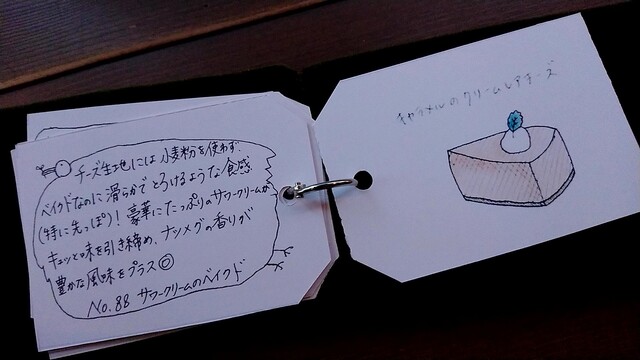 チーズ生地には小麦粉を使わず、
ベイクドなのに滑らかでとろけるような食感
(特に先っぽ)！豪華にたっぷりのサワークリームが
キュッと味を引き締め、ナツメグの香りが
豊かな風味をプラス◎
No.88 サワークリームのベイクド
キャラメルのクリームレアチーズ